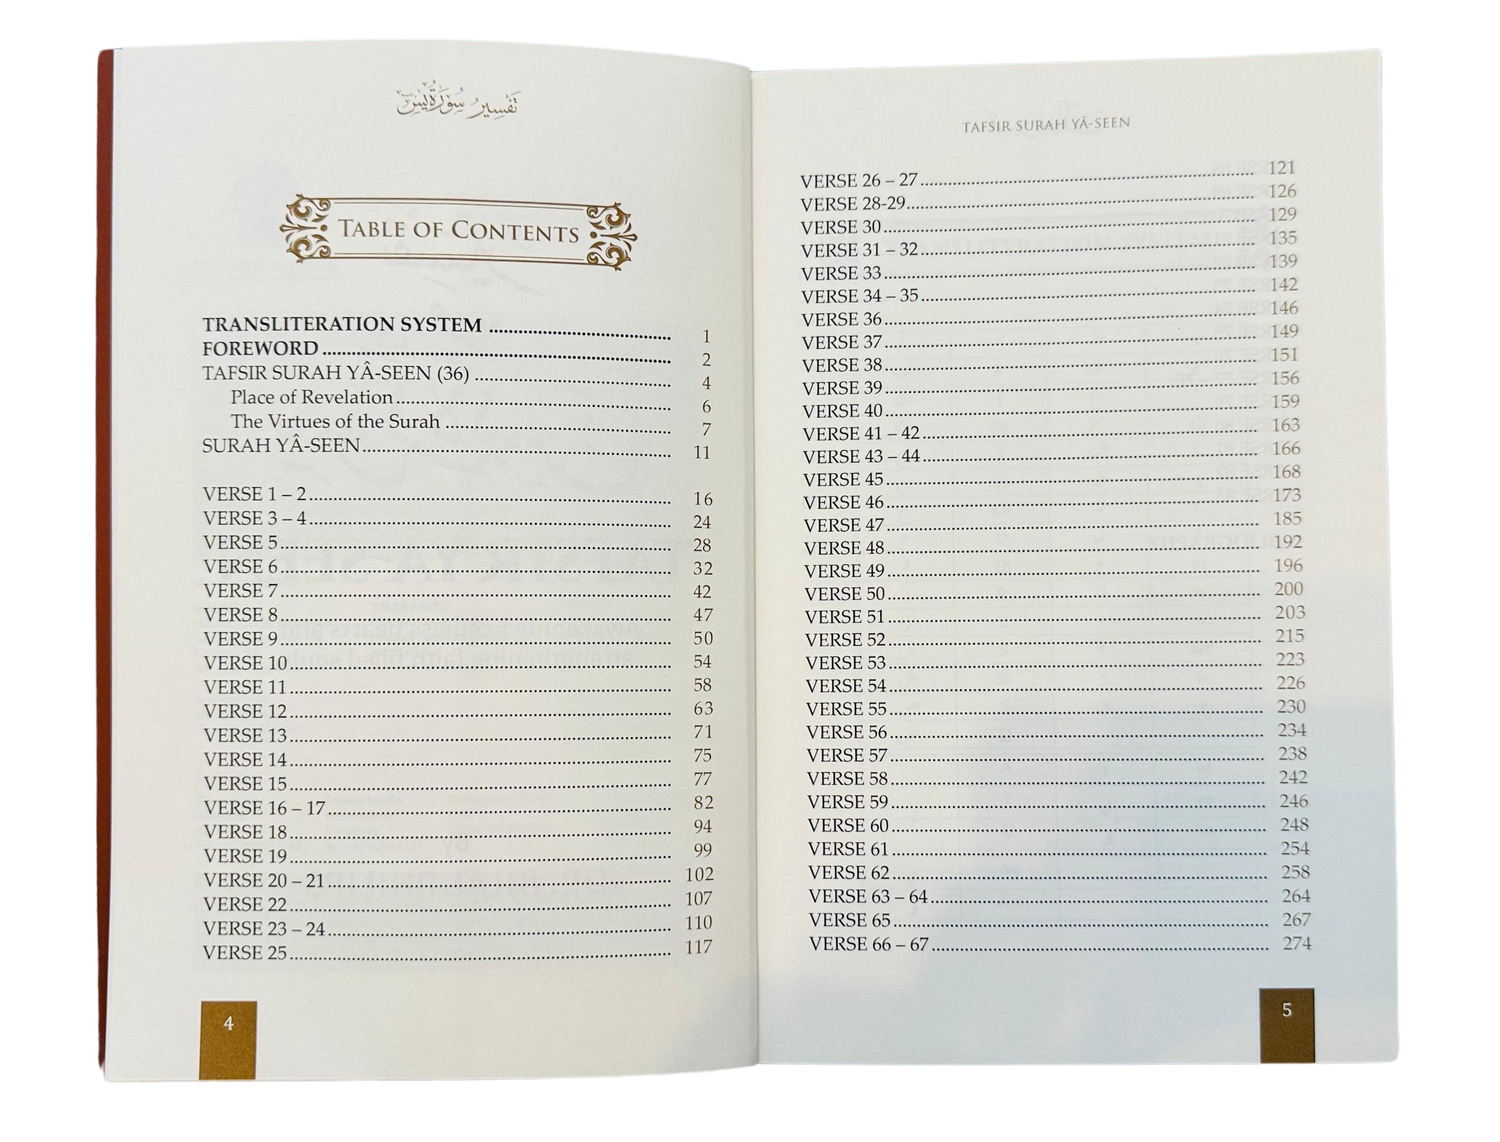 تفسير سورة يس
TABLE OF CONTENTS
TRANSLITERATION SYSTEM ........ 1
FOREWORD ........ 2
TAFSIR SURAH YÂ-SEEN (36) ........ 4
Place of Revelation ........ 6
The Virtues of the Surah ........ 7
SURAH YÂ-SEEN ........ 11
VERSE 1 – 2 ........ 16
VERSE 3 – 4 ........ 24
VERSE 5 ........ 28
VERSE 6 ........ 32
VERSE 7 ........ 42
VERSE 8 ........ 47
VERSE 9 ........ 50
VERSE 10 ........ 54
VERSE 11 ........ 58
VERSE 12 ........ 63
VERSE 13 ........ 71
VERSE 14 ........ 75
VERSE 15 ........ 77
VERSE 16 – 17 ........ 82
VERSE 18 ........ 94
VERSE 19 ........ 99
VERSE 20 – 21 ........ 102
VERSE 22 ........ 107
VERSE 23 – 24 ........ 110
VERSE 25 ........ 117
4
TAFSIR SURAH YÂ-SEEN
VERSE 26 – 27 ........ 121
VERSE 28-29 ........ 126
VERSE 30 ........ 129
VERSE 31 – 32 ........ 135
VERSE 33 ........ 139
VERSE 34 – 35 ........ 142
VERSE 36 ........ 146
VERSE 37 ........ 149
VERSE 38 ........ 151
VERSE 39 ........ 156
VERSE 40 ........ 159
VERSE 41 – 42 ........ 163
VERSE 43 – 44 ........ 166
VERSE 45 ........ 168
VERSE 46 ........ 173
VERSE 47 ........ 185
VERSE 48 ........ 192
VERSE 49 ........ 196
VERSE 50 ........ 200
VERSE 51 ........ 203
VERSE 52 ........ 215
VERSE 53 ........ 223
VERSE 54 ........ 226
VERSE 55 ........ 230
VERSE 56 ........ 234
VERSE 57 ........ 238
VERSE 58 ........ 242
VERSE 59 ........ 246
VERSE 60 ........ 248
VERSE 61 ........ 254
VERSE 62 ........ 258
VERSE 63 – 64 ........ 264
VERSE 65 ........ 267
VERSE 66 – 67 ........ 274
5